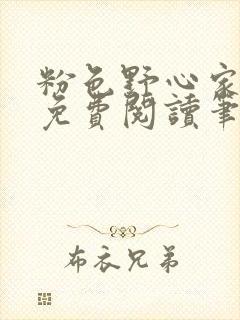 粉色野心家
免費閱讀筆
布衣兄弟